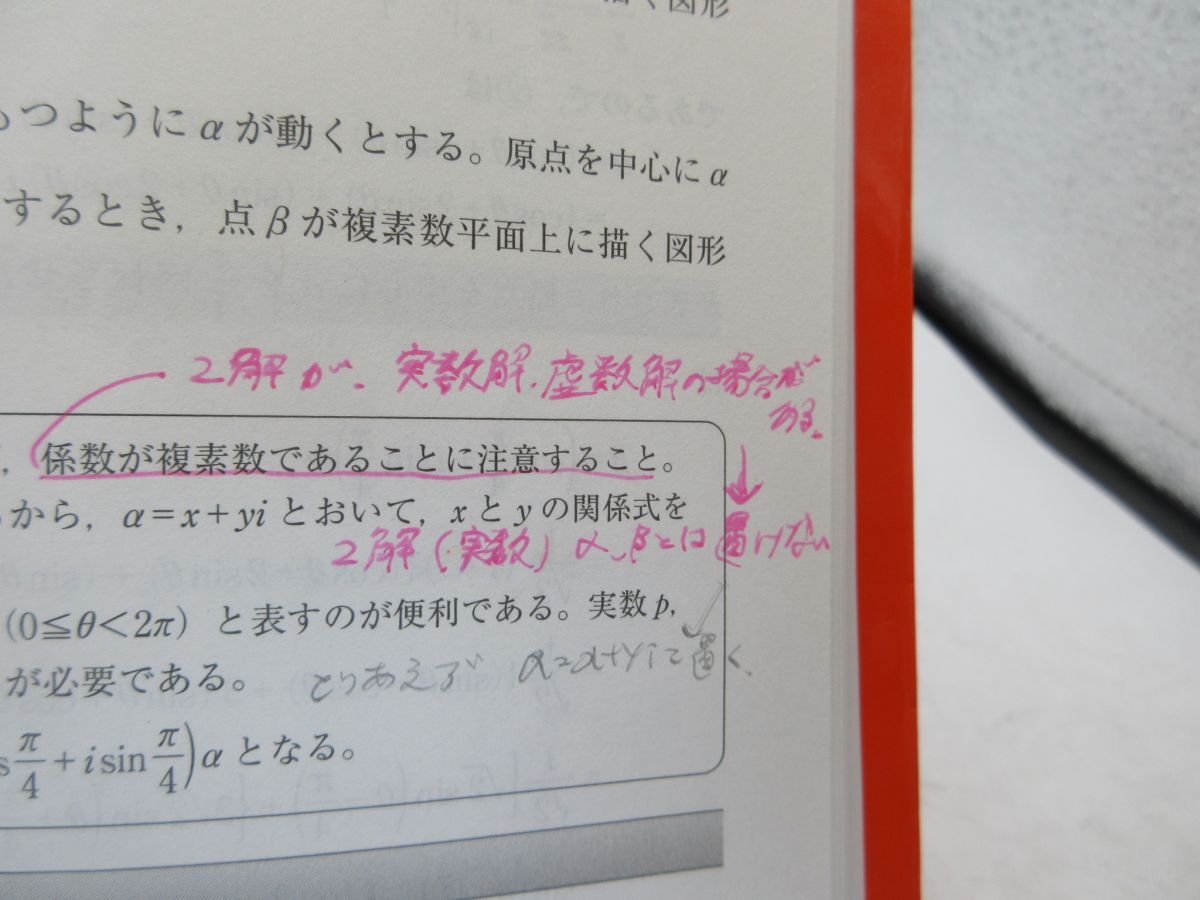 描く図形
もつようにαが動くとする。原点を中心にα
するとき，点βが複素数平面上に描く図形
2解が、実数解、虚数解の場合が
ある。
，係数が複素数であることに注意すること。
から，α＝x＋yi とおいて，xとyの関係式を
2解（実数）α、βとは置けない
（0≦θ＜2π）と表すのが便利である。実数p，
が必要である。
とりあえず α=x+yiと置く、
s π/4 ＋i sin π/4）α となる。